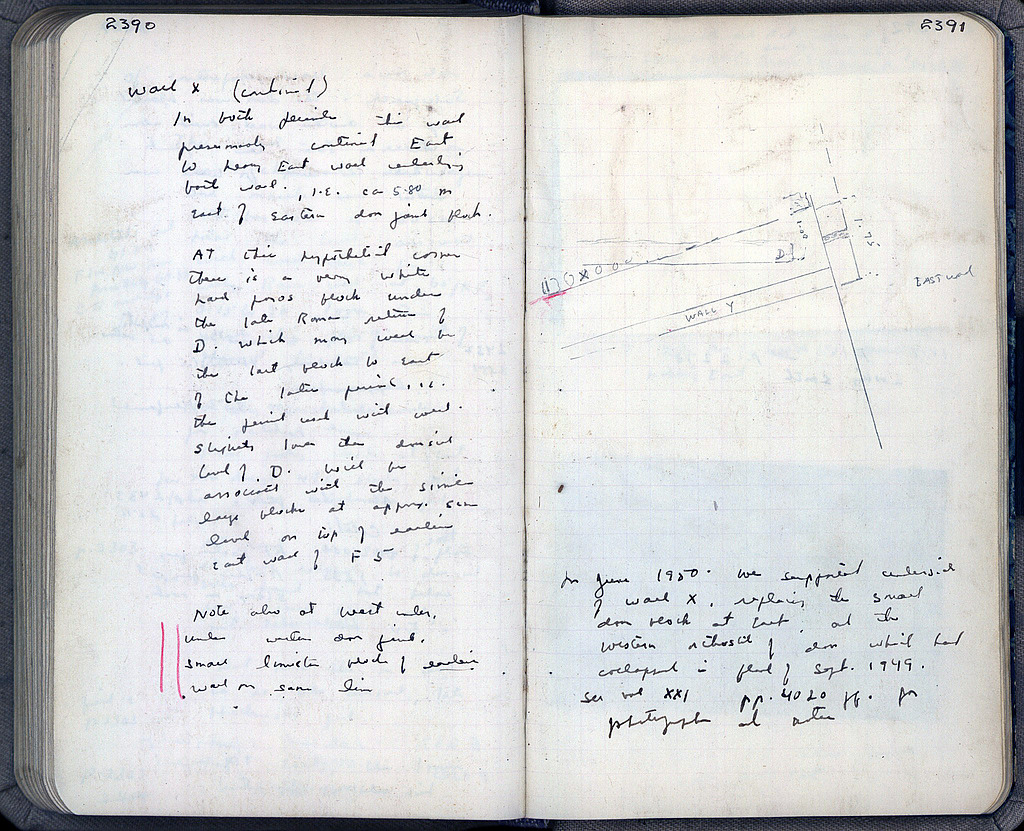 2390
Wall X (continued)
In both periods this wall
presumably continued East
to heavy East wall underlying
both wall. , i.e. ca 5.80 m
East of Eastern door jamb block.
AT this hypothetical corner
there is a very white
hard poros block under
the late Roman return of
D. which may well be
the last block to East
of the later period, i.e.
the period used with well.
Slightly lower than doorsill
level of D. Will be
associated with the similar
large blocks at approx. same
level on top of earlier
East wall of F 5
Note also at West under,
under western door jamb,
small limestone blocks of earlier
wall on same line
2391
1.00
1.75
D
X
WALL Y
EAST wall
In June 1950. we supported underside
of wall X, replacing the small
door block at East, and the
western orthostat of door which had
collapsed in flood of Sept. 1949.
See vol XXI pp. 4020 ff. for
photographs and notes